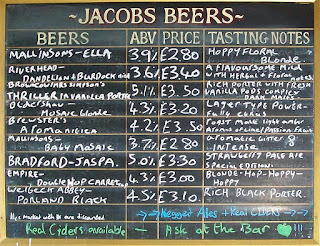 ~JACOBS BEERS~
BEERS ABV PRICE TASTING NOTES
MALLINSONS ~ ELLA 3.9% £2.80 HOPPY FLORAL BLONDE
RIVERHEAD~
DANDELION & BURDOCK MILD 3.6% £3.40 A FLAVOURSOME MILD
WITH HERBAL & FLORAL NOTES
THRILLER IN VANILLA PORTER 5.1% £3.50 RICH PORTER WITH FRESH
VANILLA PODS COMPLEX
Mosaic blonde 4.3% £3.20 LAGER TYPE POWER~
BREWSTER'S
AROMANIGICA 4.2% £3.50
MALLINSONS~
BABY MOSAIC 3.7% £2.80 INTENSE
BRADFORD~JASPA. 5.0% £3.30 STRAWBERRY PALE ALE
SPECIAL EDITION
EMPIRE~
DOUBLE HOP 4.3% £3.00 BLONDE~HOP~HOPPY~
HOPPY
PORLAND BLACK 4.5% £3.10 RICH BLACK PORTER
marked with are discounted Kegged Ales + Real CIDERS
Real Ciders available ~ Ask at the Bar !!!